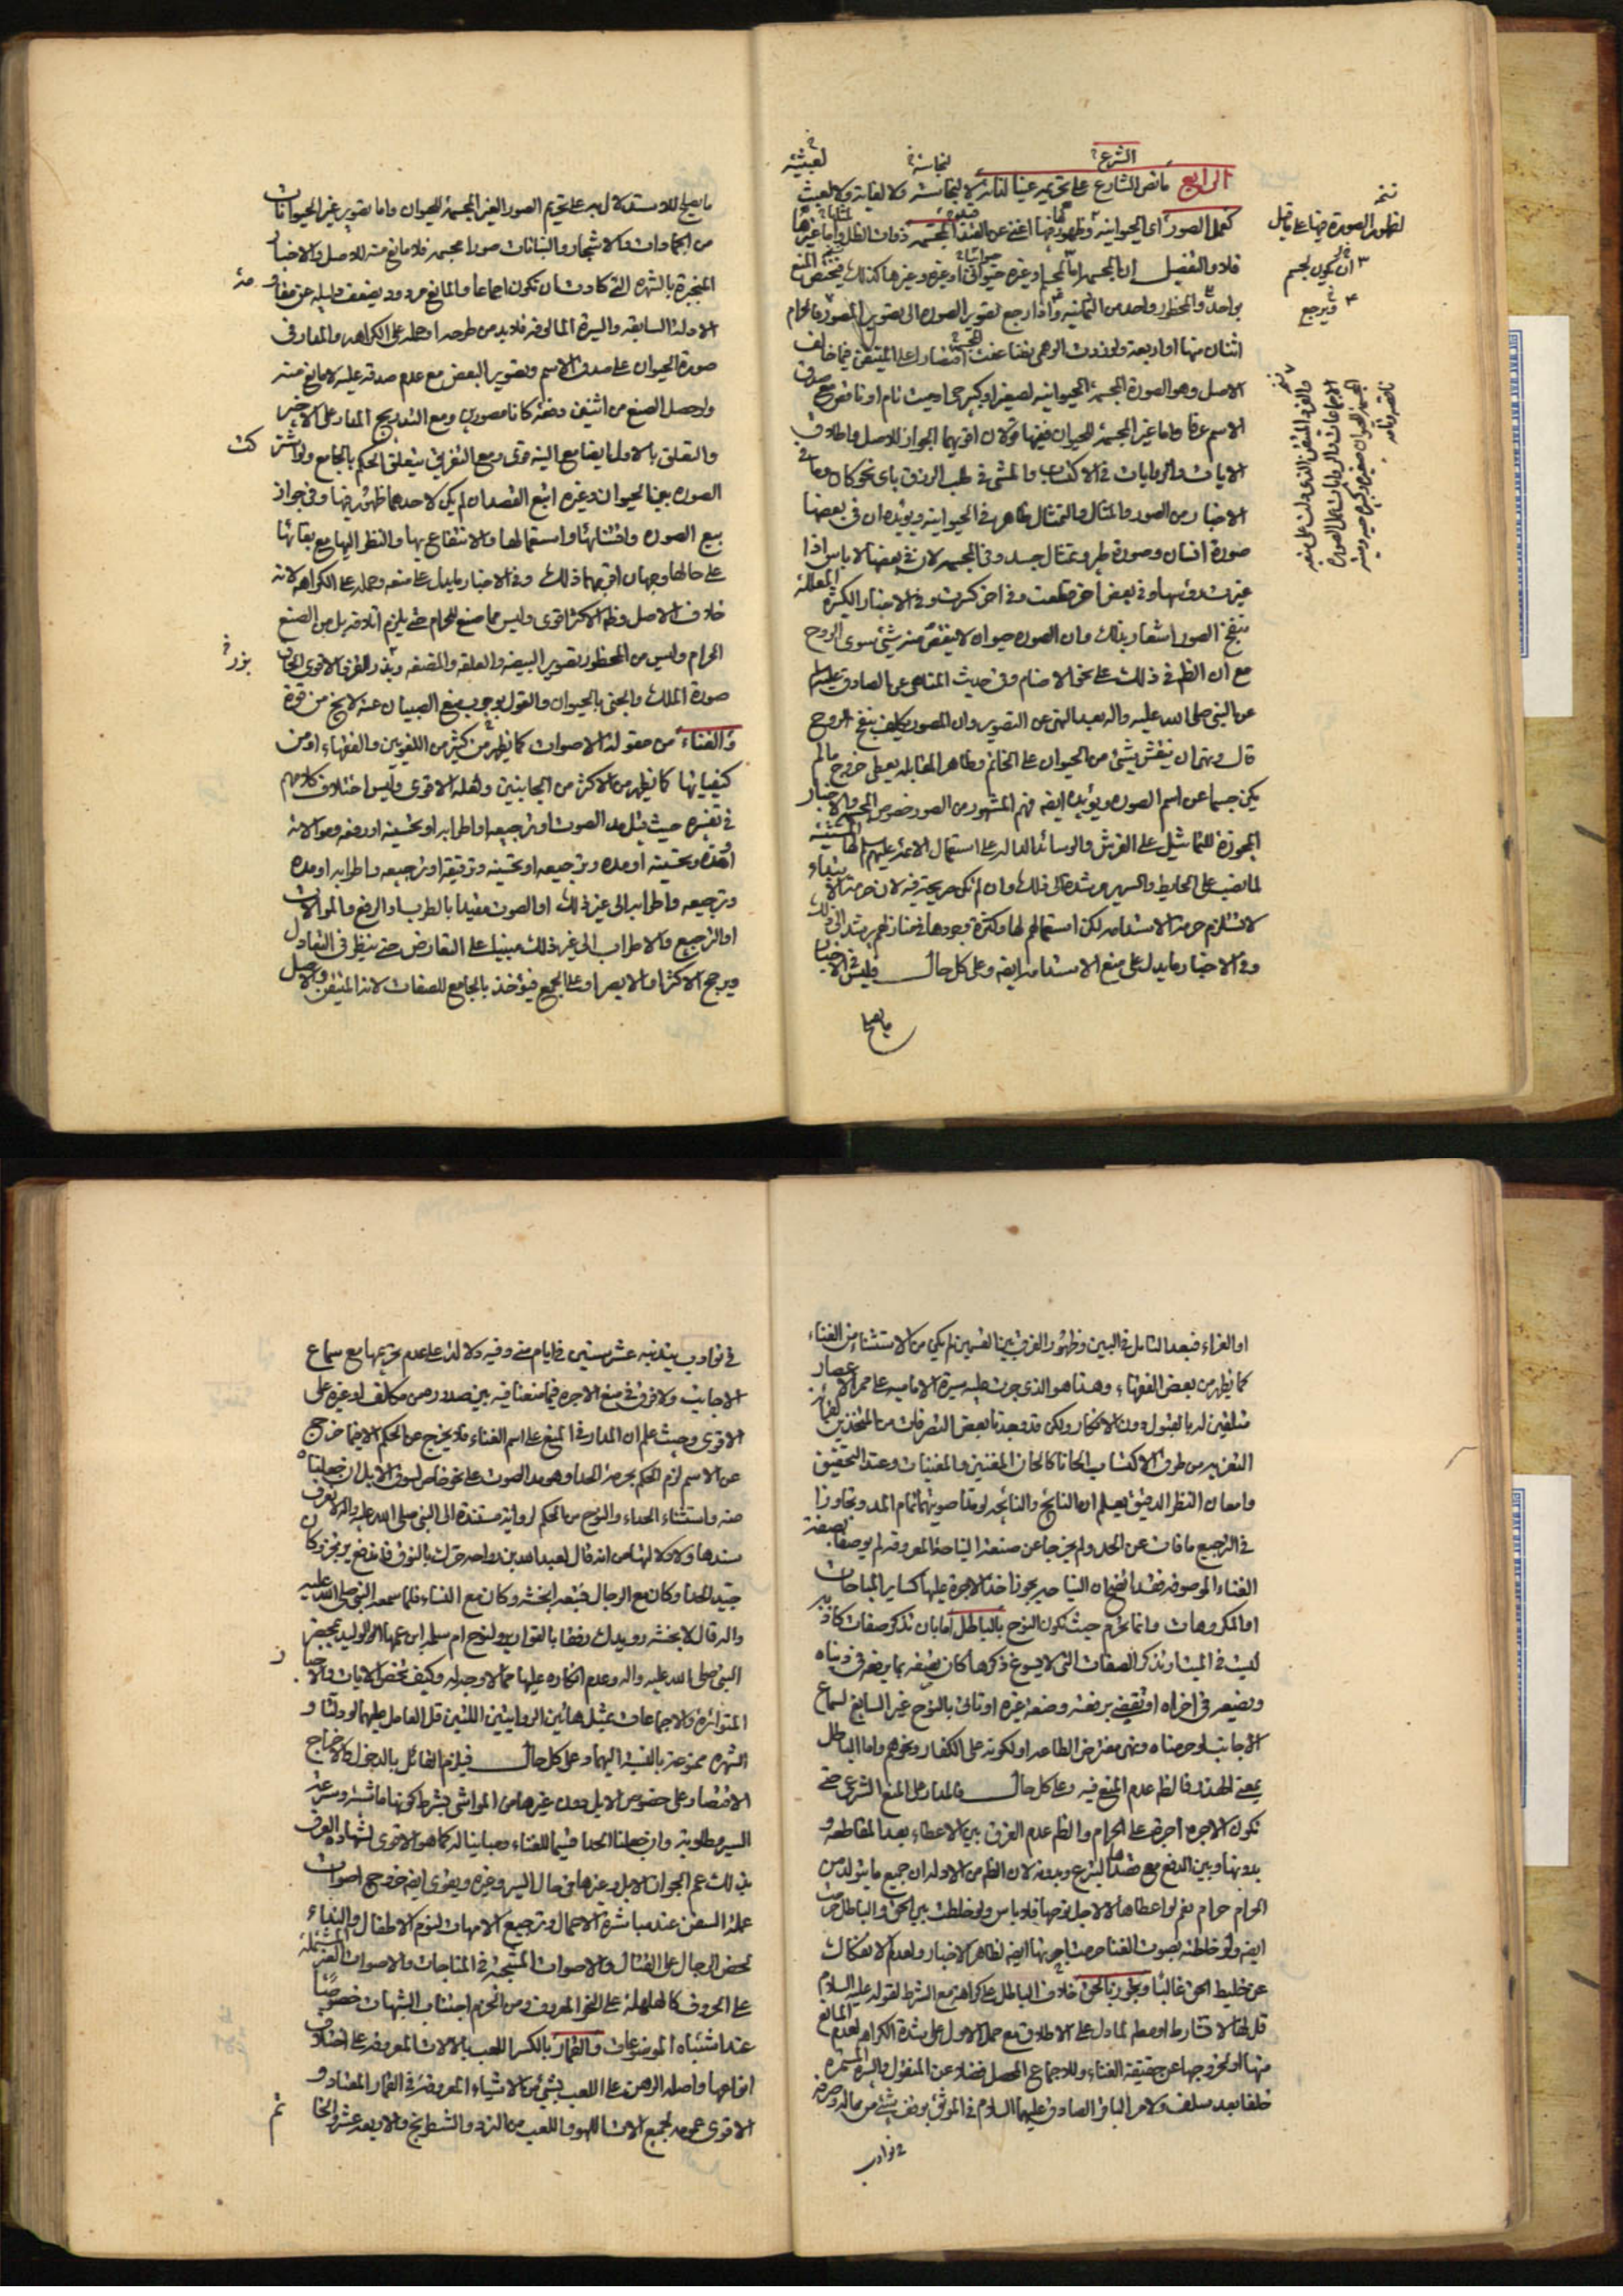 الشرع
لنجاسته
لعبثيته
الرابع ما نص الشارع على تحريمه عينا لذاته لا لنجاسته ولا لغاية ولا لعبث
كعمل الصور اى الحيوانية وظهورها اغنى عن القيد المجسمة ذوات الظل واما غيرها
فلا والتفصيل ان المجسم او غيره حيوانى او غيره وغيرها كذلك فيختص المنع
بواحد والمحظور واحد من الثمانية واذا رجع تصوير الصورة الى تصوير المصور فالحرام
اثنان منها او اربعة
الاصل وهو الصورة المجسمة الحيوانية لصغير او كبير حى او ميت تام او ناقص مع صدق
الاسم عرفا واما غير المجسمة للحيوان ففيها قولان اقويهما الجواز للاصل واطلاق
الايات والروايات فى الاكتساب والمشى فى طلب الرزق باى نحو كان وما فى
الاخبار من الصور والمثال والتمثال ظاهر فى الحيوانية ويؤيده ان فى بعضها
صورة انسان وصورة طير وتمثال جسد وفى المجسم لان فى بعضها لا باس اذا
غيرت رؤسها وفى بعض اخر قطعت وفى اخر كسرت وفى الاخبار الكثيرة المعللة
بنفخ الصور اشعار بذلك وان الصورة حيوان لا ينقص منه شئ سوى الروح
مع ان الظهر فى ذلك على نحو الاصنام وفى حديث المناهى عن الصادق عليه السلم
عن النبى صلى الله عليه واله بعد النهى عن التصوير وان المصور يكلف بنفخ الروح
قال ونهى ان ينقش شئ من الحيوان على الخاتم وظاهر المقابلة يعطى خروج مالم
يكن جسما عن اسم الصورة ويؤيده ايضه فهم المشهور من الصور خصوص المجسم والاخبار
المجوزة للتماثيل على الفرش والوسائد الدالة على استعمال الائمة عليهم السلم لها المثبتة
لما نصب على الحايط والسرير مرشدة الى ذلك وان لم تكن صريحة فيه لان حرمة الابتداء
لا تستلزم حرمة الاستدامة لكن استعمالهم لها وكثرة وجودها فى منازلهم يرشد الى ذلك
وفى الاخبار ما يدل على منع الاستدامة ايضه وعلى كل حال فليس فى الاخبار
ما يصلح
نسخه
لظهور الصورة فيها على ما قيل
ان يكون لجسم
ويرجع
ما يصلح للاستدلال به على تحريم الصور الغير المجسمة للحيوان واما تصوير غير الحيوانات
من الجمادات والاشجار والنباتات صورا مجسمة فلا مانع منه للاصل والاخبار
المنجبرة بالشهرة التى كادت ان تكون اجماعا والمانع مردود بضعف دليله عن مقاومة
الادلة السابقة والسيرة المالوفة فلا بد من طرحه او حمله على الكراهه والمدار فى
صورة الحيوان على صدق الاسم وتصوير البعض مع عدم صدقه عليه لا مانع منه
ولو حصل الصنع من اثنين دفعة كانا مصورين ومع التدريج المدار على الاخير
والتعلق بالاول ايضا مع النية قوى ومع التفريق يتعلق الحكم بالجامع ولو اشتركت
الصورة بين الحيوان وغيره اتبع القصد ان لم يكن لاحدهما ظهور فيها وفى جواز
بيع الصورة واقتنائها واستعمالها والانتفاع بها والنظر اليها مع بقائها
على حالها وجهان اقويهما ذلك وفى الاخبار ما يدل على منعه وحمله على الكراهة لانه
خلاف الاصل وظه الاكثر اقوى وليس مما صنع للحرام حتى يلزم اتلافه بل من الصنع
الحرام وليس من المحظور تصوير البيضه والعلقه والمضغه وبذر القز والاقوى الحاق
بزر
صورة الملك والجنى بالحيوان والقول بوجوب منع الصبيان عنه لا يخ من قوة
والغناء من مقولة الاصوات كما يظهر من كثير من اللغويين والفقهاء او من
كيفياتها كما يظهر من الاكثر من الجانبين ولعله الاقوى وليس اختلاف كلامهم
فى تفسيره حيث قيل مد الصوت او ترجيعه او اطرابه او تحسينه او رفعه وموالاته
او مده وتحسينه او مده وترجيعه او تحسينه وترقيقه او ترجيعه واطرابه او مده
وترجيعه واطرابه الى غير ذلك او الصوت مقيدا بالطرب او الرفع والموالات
او الترجيع والاطراب الى غير ذلك مبنيا على التعارض حتى ينظر فى التعادل
ويرجح الاكثر او الابصر او على الجمع فيؤخذ بالجامع للصفات لانه المتيقن والاصل
او الغراء فبعد التامل فى البين وظهور الفرق بين القسمين لم يكن من الاستثناء من الغناء
كما يظهر من بعض الفقهاء وهذا هو الذى جرت عليه سيرة الامامية على ممر الاعصار
متلقين له بالقبول دون الانكار ولكن قد وجدنا بعض التصرفات من المتخذين لقرائة
التعزيه من طرق الاكتساب الحانا كالحان المغنين والمغنيات وعند التحقيق
وامعان النظر الدقيق يعلم ان النايح والنايحة لو مدا صوتيهما تمام المد وتجاوزا
فى الترجيع ما فات عن الحد ولم يخرجا عن صنعة النياحة المعروفة لم يوصفا بصفة
الغناء الموصوفة فقد اتضح ان النياحة يجوز اخذ الاجرة عليها كساير المباحات
او المكروهات وانما يحرم حيث تكون النوح بالباطل اما بان تذكر صفات كاذبة
ليست فى الميت او تذكر الصفات التى لا يسوغ ذكرها كان يصفه بما يرفعه فى دنياه
ويضعه فى اخراه او تقضى برفعته وضعة غيره او تاتى بالنوح غير السايغ لسماع
الاجانب لو حرمناه ونهى مفترض الطاعة او لكونه على الكفار ونحوهم واما الباطل
بمعنى الهذر فالظ عدم المنع فيه وعلى كل حال فالمدار على المنع الشرعى حتى
تكون الاجرة اجرة على الحرام والظ عدم الفرق بين الاعطاء بعد المقاطعة و
بدونها وبين الدفع مع قصد الشرع وبدونه لان الظ من الادلة ان جميع ما يتولد من
الحرام حرام نعم لو اعطاها لا لاجل نوحها فلا باس ولو خلطت بين الحق والباطل حرمت
ايضه ولو خلطته بصوت الغنا حرمت اجرتها ايضه لظاهر الاخبار ولعدم الانفكاك
عن تخليط الحق غالبا ويجوز بالحق خلاف الباطل على كراهة مع الشرط لقوله عليه السلام
قل لها لا تشارط او مطه لما دل على الاطلاق مع حمل الاول على شدة الكراهة لعدم المانع
منها او لخروجها عن حقيقة الغناء وللاجماع المحصل فضلا عن المنقول والسيرة المستمرة
خلفا بعد سلف ولامر الباقر الصادق عليهما السلام فى الموثق بوقف شئ من ماله وصرفه
فى نوادب
فى نوادب يندبنه عشر سنين فى ايام منى وفيه دلالة على عدم تحريمها مع سماع
الاجانب ولا فرق فى منع الاجرة فيما منعنا فيه بين صدوره من مكلف او غيره على
الاقوى وحيث علم ان المدار فى المنع على اسم الغناء فلا يخرج عن الحكم الا فيما خرج
عن الاسم لزم الحكم بحرمة الحدا وهو مد الصوت على نحو خاص لسوق الابل ان جعلناه
منه واستثناء الحداء والنوح من الحكم لرواية مستندة الى النبى صلى الله عليه واله لا نعرف
سندها ولا دلالتها من انه قال لعبدالله بن رواحه حرك بالنوق فاندفع يرتجز وكان
جيد الحدا وكان مع الرجال فتبعه انجشه وكان مع النساء فلما سمعه النبى صلى الله عليه
واله قال لا نجشه رويدك رفقا بالقوارير ولنوح ام سلمه ابن عمها الوليد بمحضر
النبى صلى الله عليه واله وعدم انكاره عليها مما لا وجه له وكيف تخص الايات والاخبار
المتواترة والاجماعات بمثل هاتين الروايتين اللتين قل العامل عليهما لو دلتا و
الشهره ممنوعة بالنسبة اليهما وعلى كل حال فيلزم القائل بالدخول والاخراج
الاقتصار على خصوص الابل دون غيرها من المواشى بشرط كونها ماشية وسرعة
السير مطلوبة وان جعلنا الحدا قسيما للغناء ومباينا له كما هو الاقوى لشهادة العرف
بذلك عم الجواز الابل وغيرها فى حال السير وغيره ويقوى ايضه خروج اصوات
عملة السفن عند مباشرة الاعمال وترجيع الامهات لنوم الاطفال والنداء
لحض الرجال على القتال والاصوات المستجبة فى المناجات والاصوات الغير المشتملة
على الحروف كالهلهلة على النحو المعروف ومن الحزم اجتناب الشبهات خصوصا
عند اشتباه الموضوعات والقمار بالكسر اللعب بالالات المعروفة على اختلاف
انواعها واصله الرهن على اللعب بشئ من الاشياء المعروفة فى القمار المعتاد و
الاقوى عمومه لجميع الات اللهو واللعب من النرد والشطرنج والاربعة عشر والخاتم